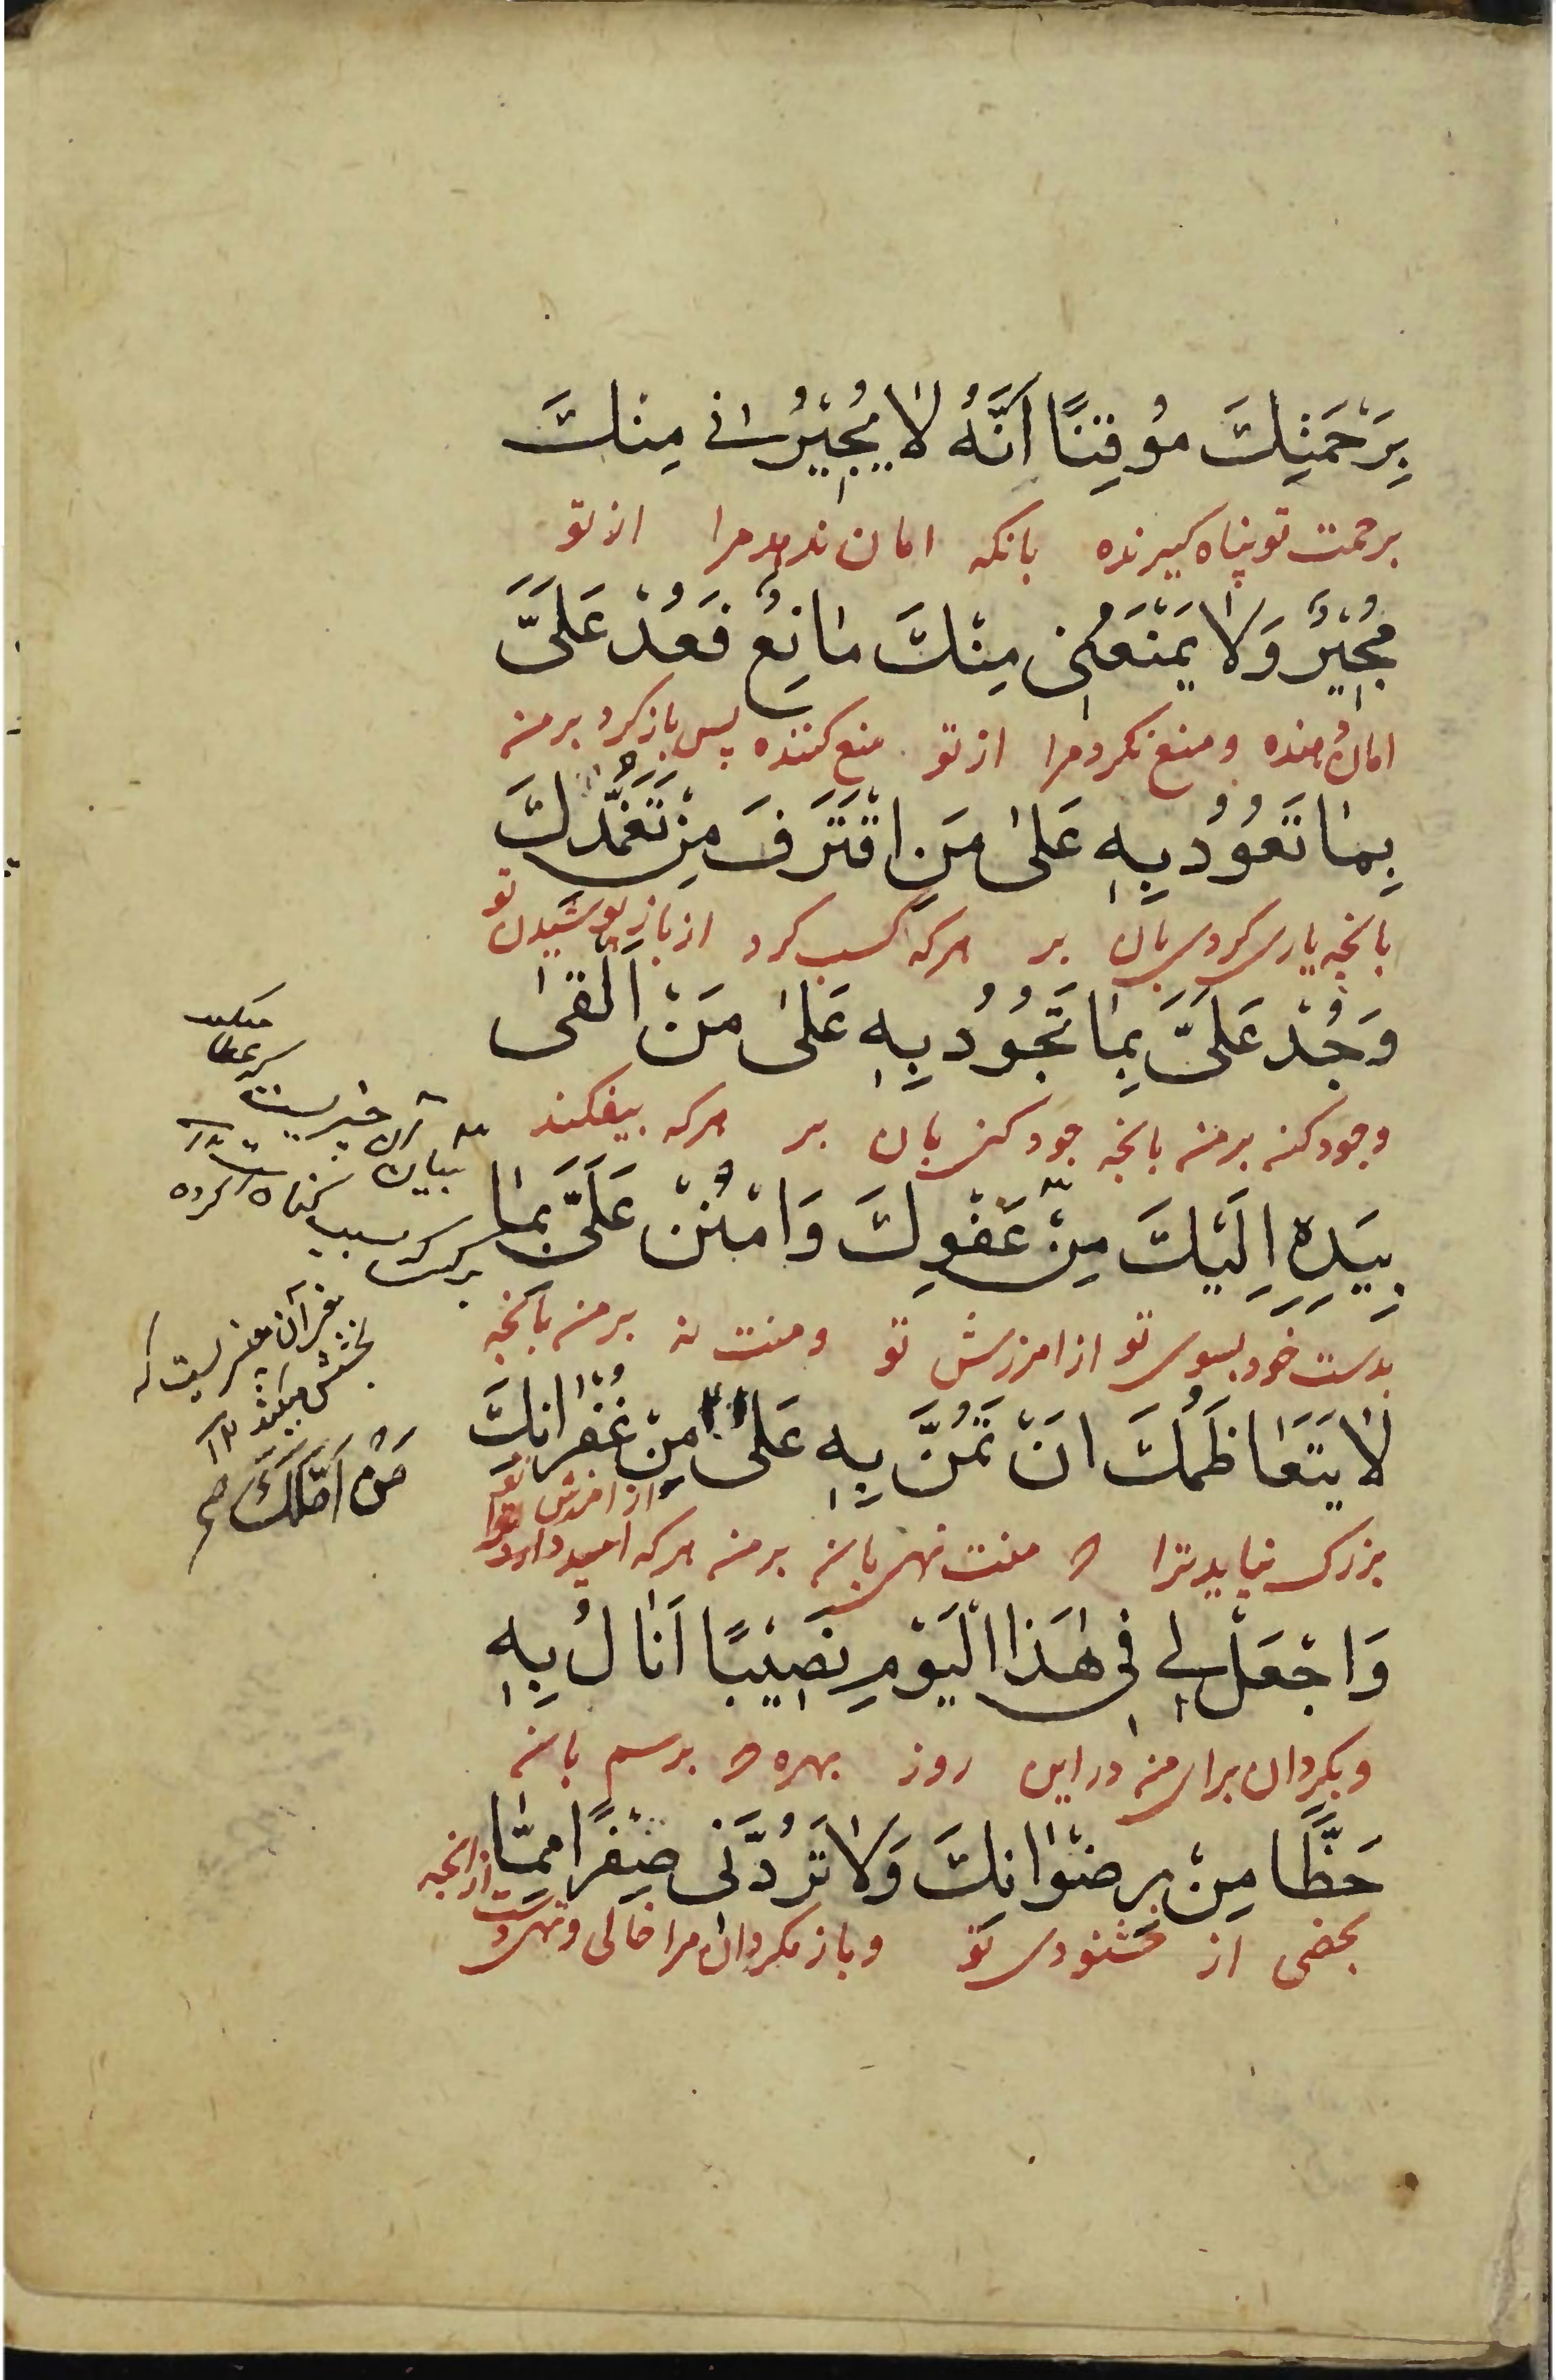 بِرَحْمَتِكَ مُوقِنًا اَنَّهُ لَا يُجِيْرُنِي مِنْكَ
برحمت تو پناه گیرنده بانکه امان ندهد مرا از تو
مُجِيْرٌ وَلَا يَمْنَعُنِي مِنْكَ مَانِعٌ فَعُدْ عَلَيَّ
امان دهنده و منع نکرد مرا از تو منع کننده پس بازکرد بر من
بِمَا تَعُوْدُ بِهِ عَلىٰ مَنِ اقْتَرَفَ مِنْ تَغَمُّدِكَ
بانچه یاری کردی بان بر هرکه کسب کرد از باز پوشیدن تو
وَجُدْ عَلَيَّ بِمَا تَجُوْدُ بِهِ عَلىٰ مَنْ اَلْقىٰ
وجود کن بر من بانچه جود کنی بان بر هرکه بیفکند
بِيَدِهِ اِلَيْكَ مِنْ عَفْوِكَ وَامْنُنْ عَلَيَّ بِمَا
بدست خود بسوی تو از امرزش تو و منت نه بر من بانچه
لَا يَتَعَاظَمُكَ اَنْ تَمُنَّ بِهِ عَلىٰ مِنْ غُفْرَانِكَ
از امرزش تو
بزرک نیاید ترا که منت نهی بان بر من هرکه امید دارد ترا
وَاجْعَلْ لِي فِي هٰذَا الْيَوْمِ نَصِيْبًا اَنَالُ بِهِ
و بکردان برای من در این روز بهره که برسم بان
حَظًّا مِنْ رِضْوَانِكَ وَلَا تَرُدَّنِي صِفْرًا مِمَّا
بخضی از خشنودی تو و باز مکردان مرا خالی و تهی دست از انچه
آن خیریست
گناه کرده
بخشش میکند ۱۲
مَنْ اَمَّلَكَ صح